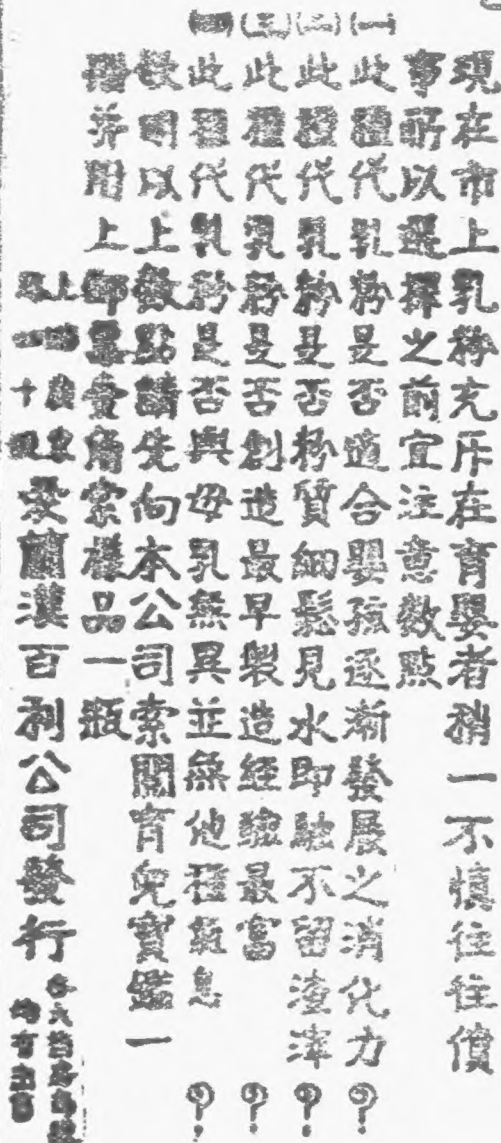 現在市上乳粉充斥在育嬰者稍一不慎往往僨
事所以選擇之前宜注意數點
(一)此種代乳粉是否適合嬰孩逐漸發展之消化力?
(二)此種代乳粉是否粉質細鬆見水即融不留渣滓?
(三)此種代乳粉是否創造最早製造經驗最富?
(四)此種代乳粉是否與母乳無異並無他種氣息?
敬明以上數點請先向本公司索閱育兒寶鑑一
冊并附上郵票壹角索樣品一瓶
上海
十號
愛蘭漢百利公司發行
各大藥房
均有出售